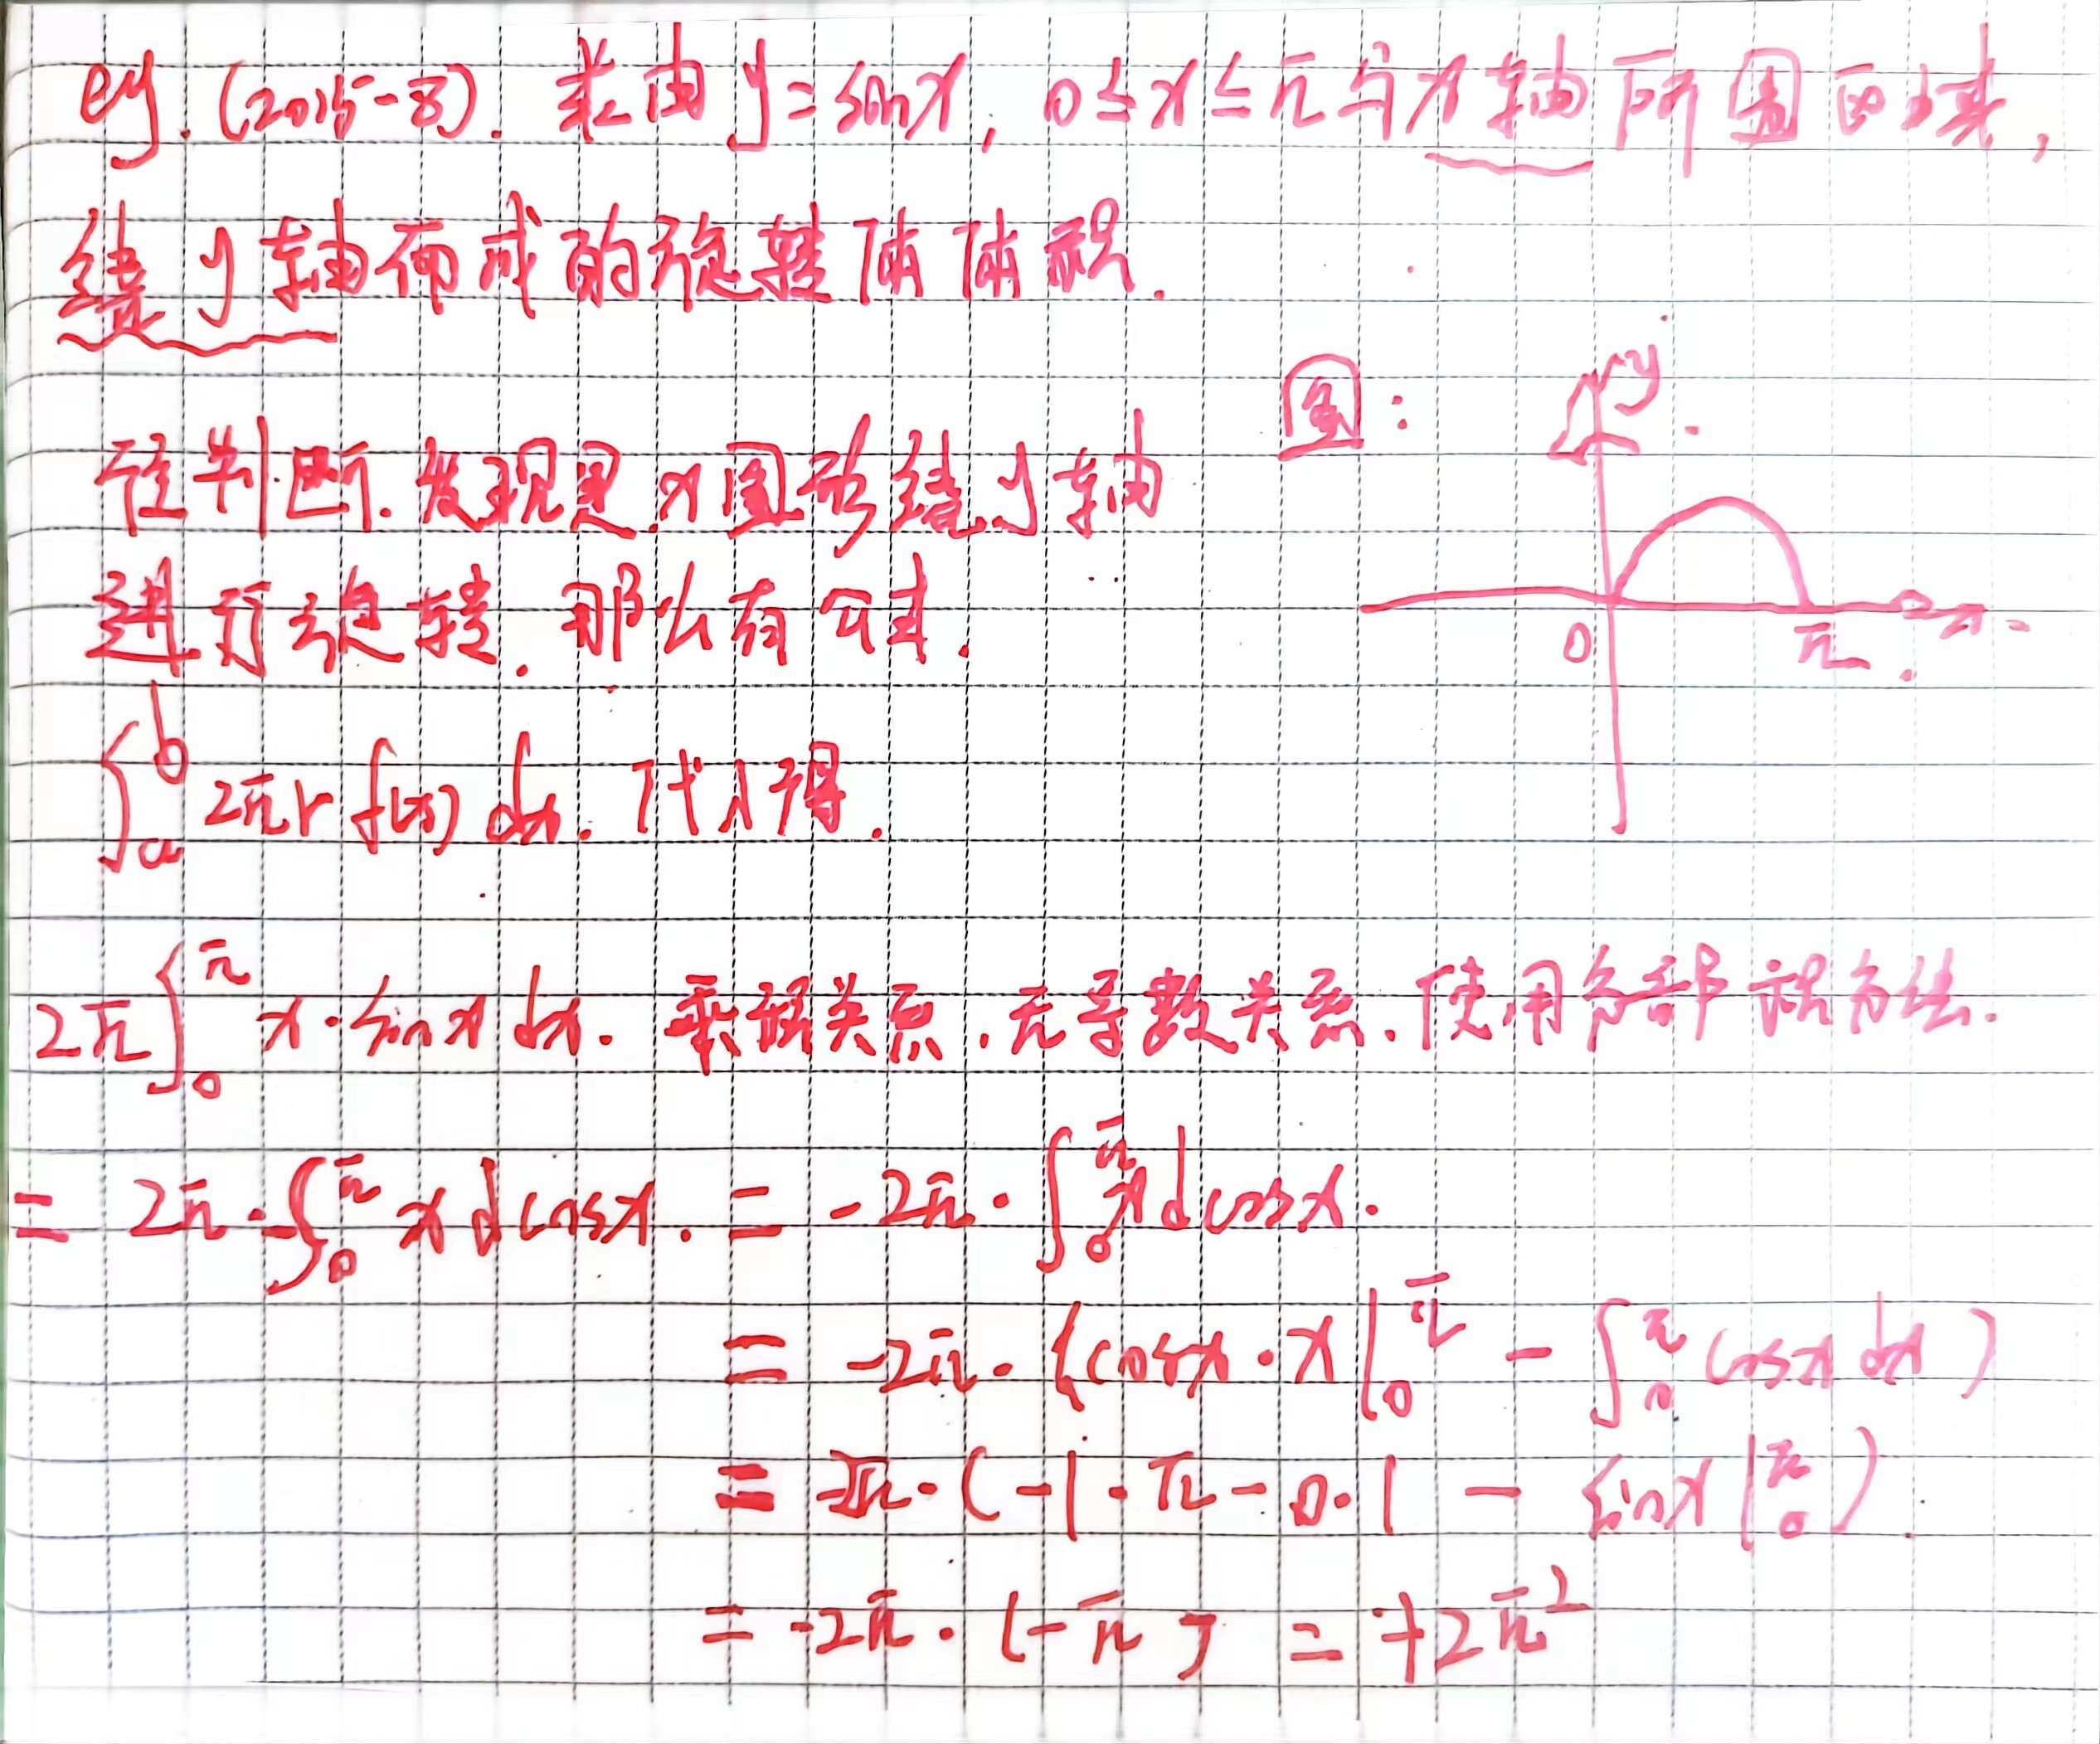 eg. (2015-8). 求由 y=sinx, 0≤x≤π与x轴所围区域,
绕y轴而成的旋转体体积.
图:
y
0 π x
经判断.发现是x图形绕y轴
进行旋转.那么有公式.
∫_a^b 2πr f(x) dx. 代入得.
2π∫_0^π x·sinx dx. 乘积关系.无导数关系.使用分部积分法.
= 2π·-∫_0^π x dcosx. = -2π·∫_0^π x dcosx.
= -2π·(cosx·x|_0^π - ∫_0^π cosx dx)
= -2π·(-1·π-0·1 - sinx|_0^π).
= -2π·(-π) = +2π²